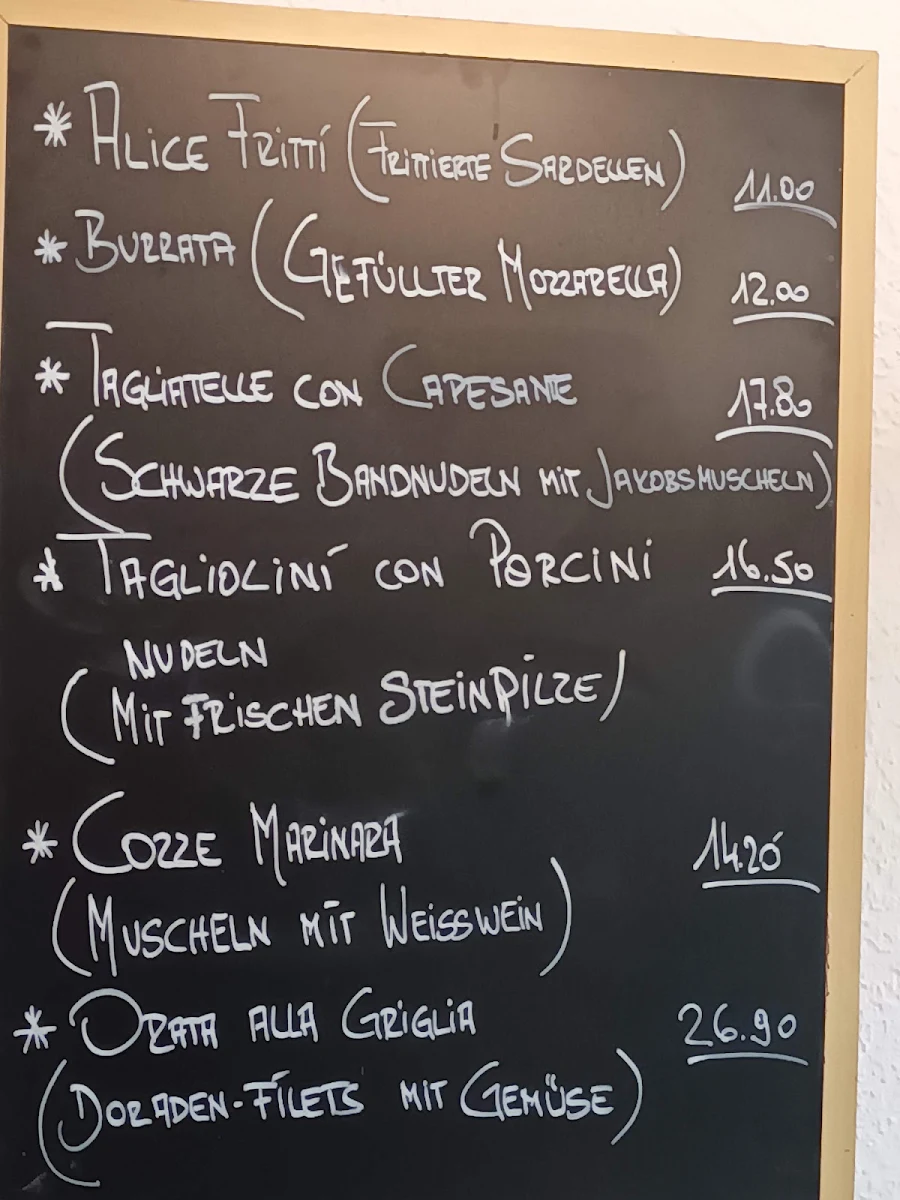 * ALICE FRITTI (FRITTIERTE SARDELLEN) 11.00
* BURRATA (GEFÜLLTER MOZZARELLA) 12.00
* TAGLIATELLE CON CAPESANTE 17.80
(SCHWARZE BANDNUDELN MIT JAKOBSMUSCHELN)
* TAGLIOLINI CON PORCINI 16.50
NUDELN
(MIT FRISCHEN STEINPILZE)
* COZZE MARINARA 14.20
(MUSCHELN MIT WEISSWEIN)
* ORATA ALLA GRIGLIA 26.90
(DORADEN-FILETS MIT GEMÜSE)